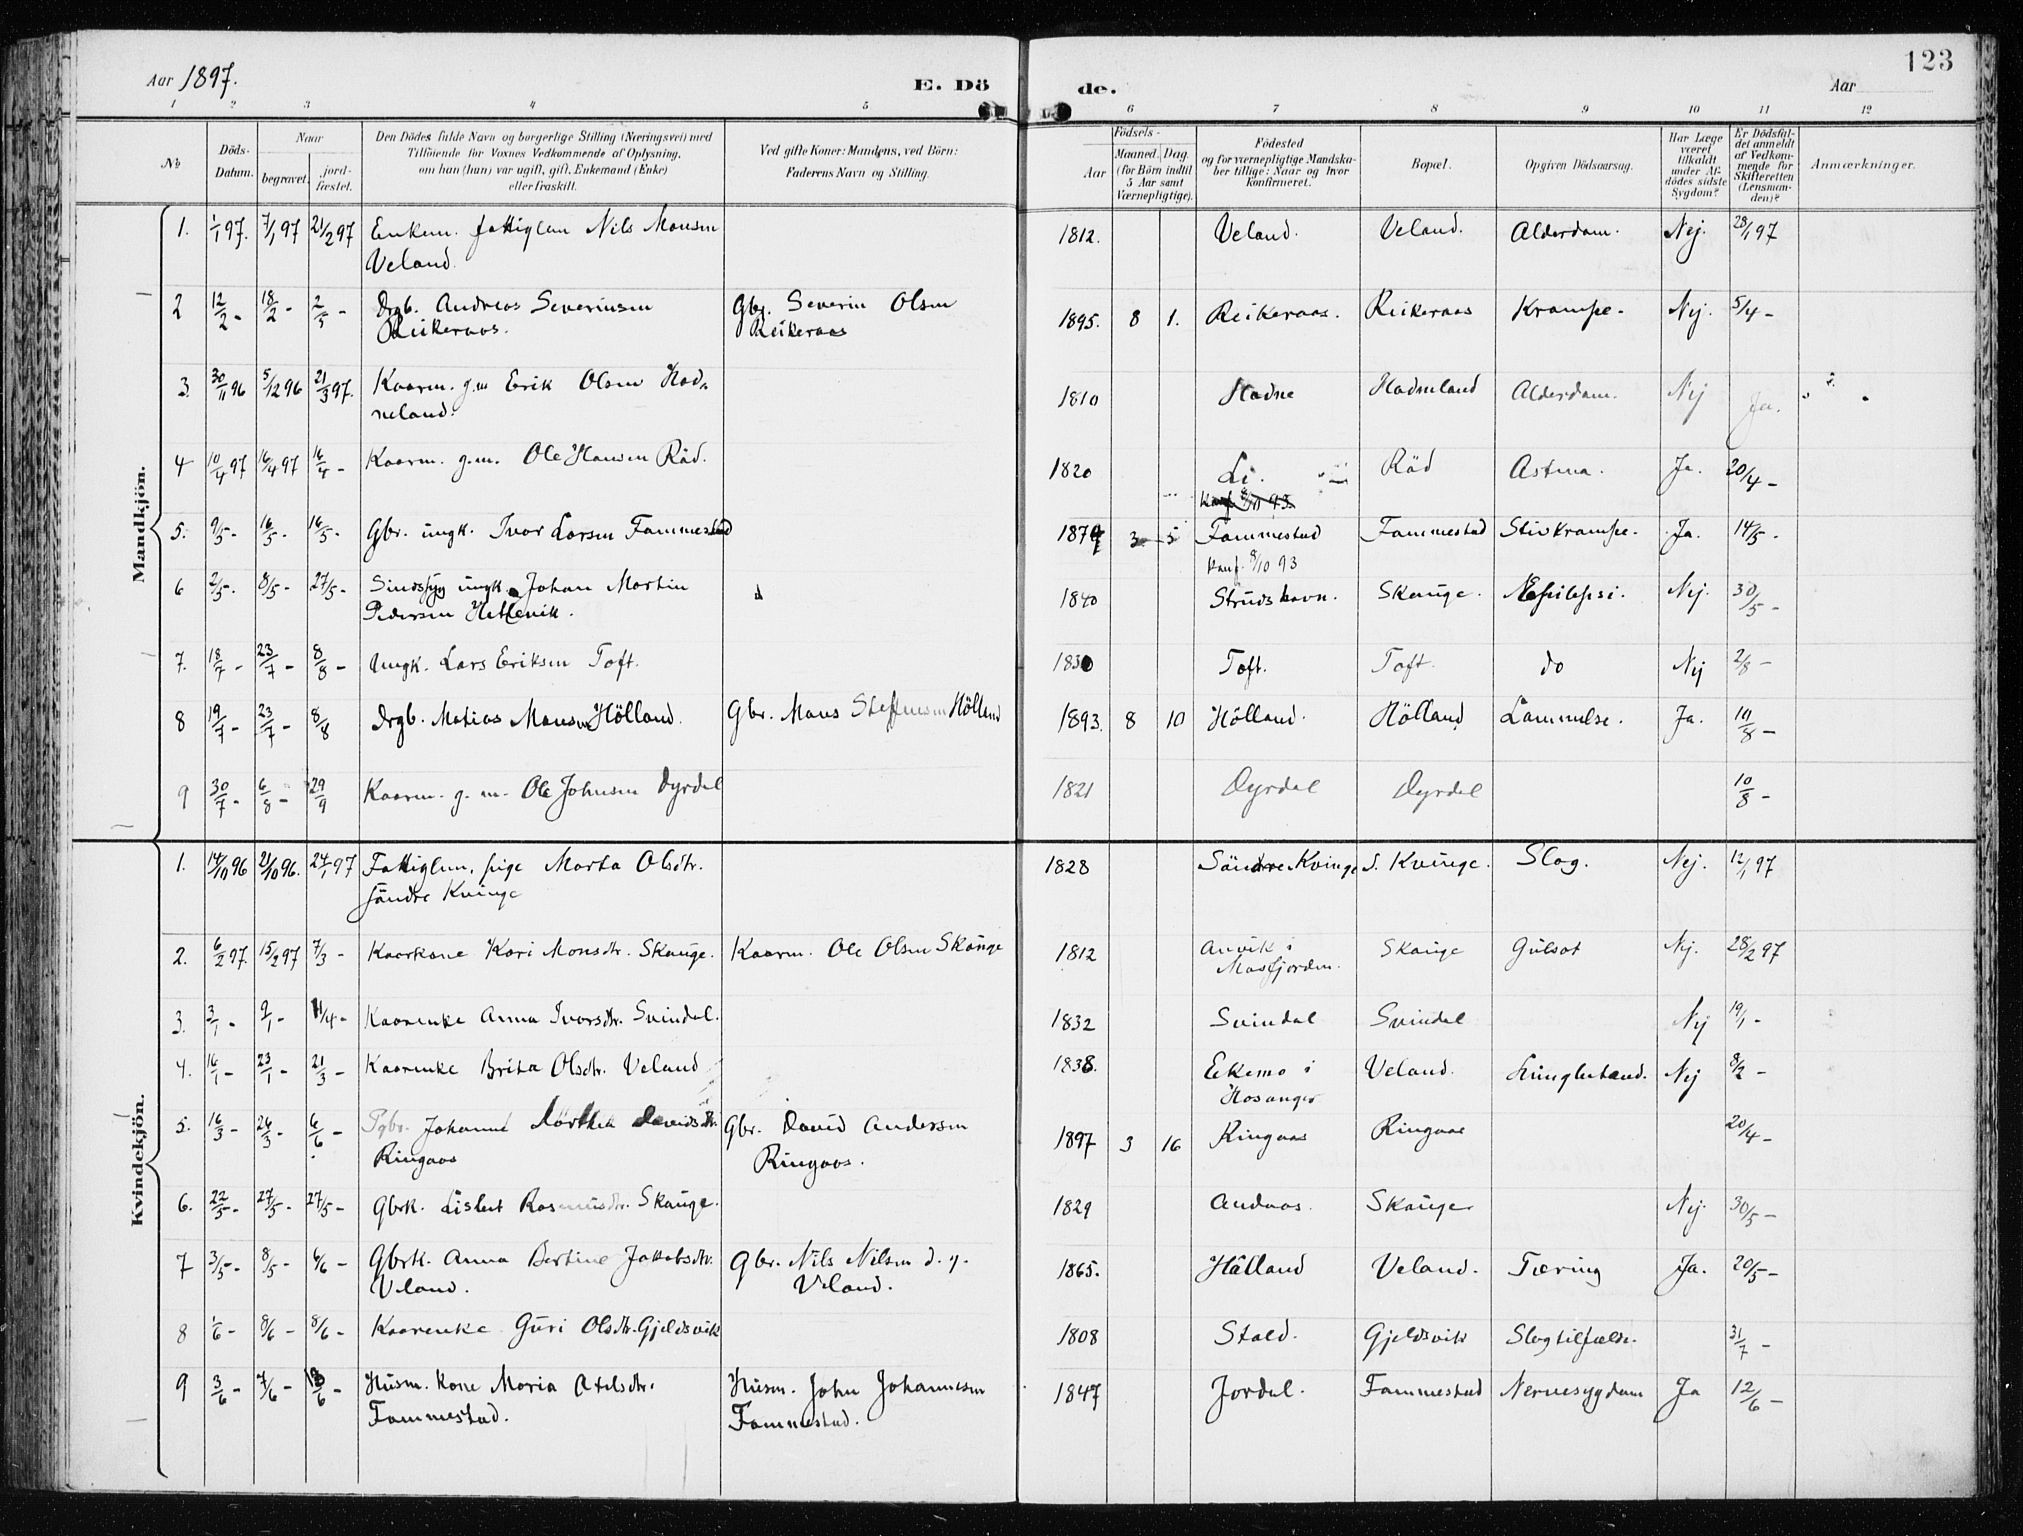 123
Aar 1897. E. Dö de. Aar
1 2 3 4 5 6 7 8 9 10 11 12
No
Döds-Datum.
Naar
begravet.
jord-fæstet.
Den Dödes fulde Navn og borgerlige Stilling (Næringsvei) med
Tilföiende for Voxnes Vedkommende af Oplysning,
om han (hun) var ugift, gift, Enkemand (Enke)
eller fraskilt.
Ved gifte Koner: Mandens, ved Börn:
Faderens Navn og Stilling.
Födsels-
Aar
Maaned. Dag.
(for Börn indtil
5 Aar samt
Værnepligtige).
Födested
og for værnepligtige Mandska-
ber tillige: Naar og hvor
konfirmeret.
Bopæl.
Opgiven Dödsaarsag.
Har Læge
været
tilkaldt
under Af-
dödes sidste
Sygdom?
Er Dödsfal-
det anmeldt
af Vedkom-
mende for
Skifteretten
(Lensman-
den)?
Anmærkninger.
Mandkjön.
1. 1/1 97. 7/1 97 21/2 97 Enkem. fattiglem Nils Monsen 1812. Veland. Veland. Alderdom. Nej. 28/1 97
Veland.
2 12/2 - 18/2 - 2/5 - Drgb. Andreas Severinsen Gbr. Severin Olsen 1895. 8 1. Reikeraas. Reikeraas Krampe. Nej. 5/4 -
Reikeraas. Reikeraas
3. 30/11 96 5/12 96 21/3 97. Kaarm. g.m. Erik Olsen Hod- 1810 Hodne Hodneland Alderdom. Nej Ja.
neland.
4 10/4 97 16/4 97 16/4 - Kaarm. g.m. Ole Hansen Räd. 1820 Li. Räd Astma. Ja. 20/4 -
Konf. 8/10 93
5. 9/5 - 16/5 - 16/5 - Gbr. ungk. Ivar Larsen Fammestad 187 3 5 Fammestad Fammestad Stivkrampe. Ja. 14/5 -
Konf. 8/10 93
6 2/5 - 8/5 - 27/5 - Sindssyg ungk. Johan Martin 1840 Strudshavn. Skauge. Epilepsi. Nej. 30/5 -
Pedersen Hetlevik.
7. 18/7 - 23/7 - 8/8 - Ungk. Lars Eriksen Toft. 1830 Toft. Toft. do Nej 2/8 -
8 19/7 - 23/7 - 8/8 Drgb. Matias Monsen Hölland. Gbr. Mons Steffensen Hölland 1893. 8 10 Hölland. Hölland Lammelse. Ja. 10/8 -
9 30/7 - 6/8 - 29/9 Kaarm. g. m. Ole Johnsen Dyrdal 1821 Dyrdal Dyrdal 10/8 -
Kvindekjön.
1. 14/10 96 21/10 96. 24/1 97 Fattiglem, pige Marta Olsdtr. 1828 Söndre Kvinge S. Kvinge. Slag. Nej. 12/1 97
söndre Kvinge
2. 6/2 97. 15/2 97 7/3 - Kaarkone Kari Monsdtr. Skauge. Kaarm. Ole Olsen Skauge 1812 Anvik i Skauge Gulsot Nej. 28/2 97
Masfjorden.
3. 3/1 - 9/1 - 11/4 - Kaarenke Anna Ivarsdtr. Svindal. 1832 Svindal Svindal Nej 19/1 -
4. 16/1 - 23/1 - 21/3 - Kaarenke Brita Olsdtr. Veland 1838. Eekemo i Veland. Lungebetænd. Nej 8/2 -
Hosanger
5. 16/3 - 26/3 - 6/6 - Pgbr. Johanne Dorthea Davidsdtr. Gbr. David Andersen 1897 3 16 Ringaas Ringaas 20/4 -
Ringaas Ringaas.
6. 22/5 - 27/5 - 27/5 - Gbrk. Lisbet Rasmusdtr. Skauge. 1829 Andaas. Skauge Nej. 30/5 -
7 3/5 - 8/5 - 6/6 - Gbrk. Anna Bertine Jakobsdtr. Gbr. Nils Nilsen d. y. 1865. Hålland Veland. Tæring Ja. 20/5 -
Veland. Veland.
8 1/6 - 8/6 - 8/6 - Kaarenke Guri Olsdtr. Gjeldsvik 1808 Stald. Gjeldsvik Slagtilfælde. 31/7 -
9 3/6 - 7/6 - 13/6 - Husm. kone Maria Axelsdtr. Husm. John Johannesen 1847 Jordal. Fammestad Nervesygdom Ja 12/6 -
Fammestad. Fammestad.